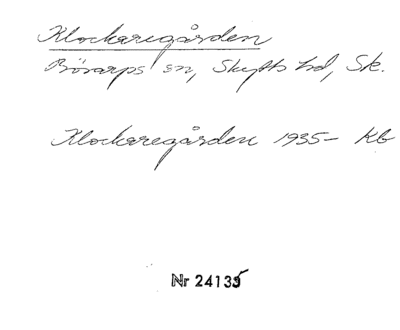 Klockaregården
Bösarps sn, Skytts hd, Sk.
Klockaregården 1935- Kb
Nr 24135